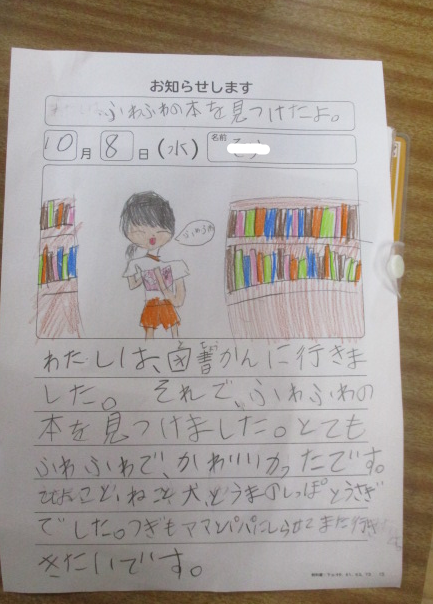 お知らせします
ふわふわの本を見つけたよ。
10月8日(水) 名前
わたしは、図書かんに行きま
した。 それで、ふわふわの
本を見つけました。とても
ふわふわで、かわいかったです。
ひよこと、ねこと犬、とうまのしっぽとうさぎ
でした。つぎもママとパパにしらせてまた行き
きたいです。